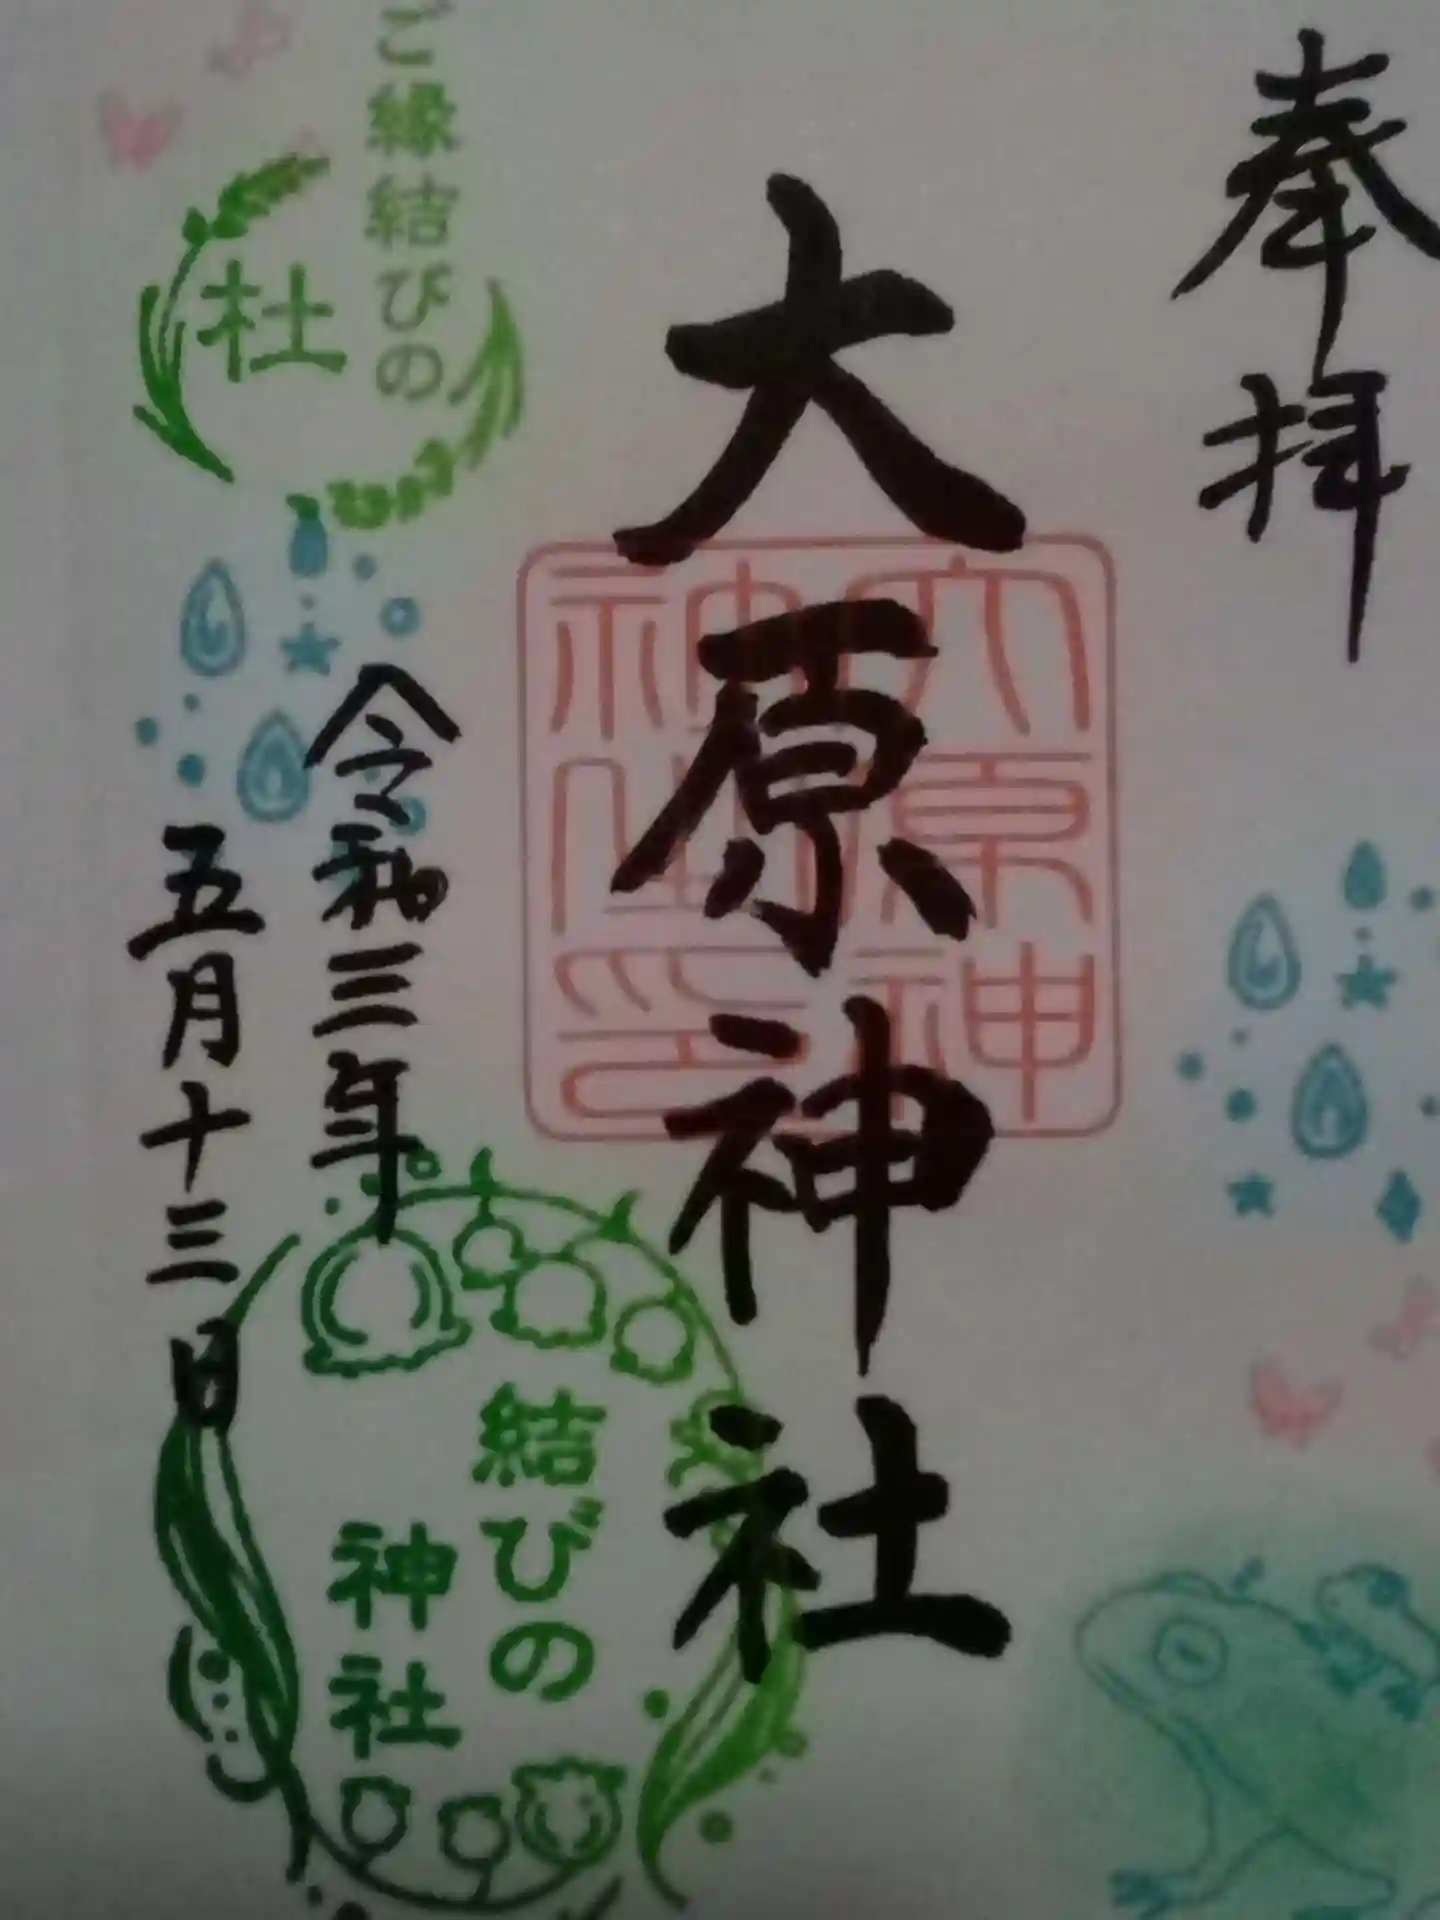 奉拝
大原神社
大原神
神社印
ご縁結びの
杜
令和三年
五月十三日
結びの
神社